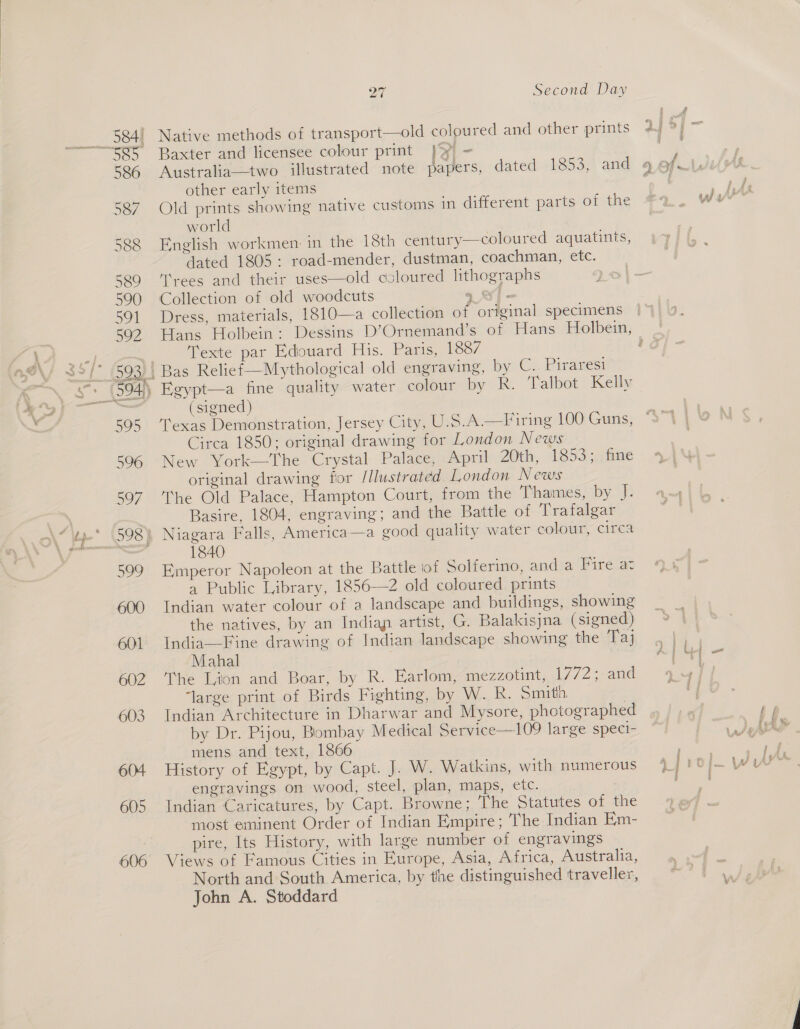 27 Second Day
584 Native methods of transport—old coloured and other prints
585 Baxter and licensee colour print
586 Australia—two illustrated note papers, dated 1853, and
other early items
587 Old prints showing native customs in different parts of the
world
588 English workmen in the 18th century—coloured aquatints,
dated 1805: road-mender, dustman, coachman, etc.
589 Trees and their uses—old coloured lithographs
590 Collection of old woodcuts
591 Dress, materials, 1810—a collection of original specimens
592 Hans Holbein: Dessins D'Ornemand's of Hans Holbein,
Texte par Edouard His. Paris, 1887
593 Bas Relief—Mythological old engraving, by C. Piraresi
594 Egypt—a fine quality water colour by R. Talbot Kelly
(signed)
595 Texas Demonstration, Jersey City, U.S.A.—Firing 100 Guns,
Circa 1850; original drawing for London News
596 New York—The Crystal Palace, April 20th, 1853; fine
original drawing for Illustrated London News
597 The Old Palace, Hampton Court, from the Thames, by J.
Basire, 1804, engraving; and the Battle of Trafalgar
598 Niagara Falls, America—a good quality water colour, circa
1840
599 Emperor Napoleon at the Battle of Solferino, and a Fire at
a Public Library, 1856—2 old coloured prints
600 Indian water colour of a landscape and buildings, showing
the natives, by an Indian artist, G. Balakisjna (signed)
601 India—Fine drawing of Indian landscape showing the Taj
Mahal
602 The Lion and Boar, by R. Earlom, mezzotint, 1772; and
large print of Birds Fighting, by W. R. Smith
603 Indian Architecture in Dharwar and Mysore, photographed
by Dr. Pijou, Bombay Medical Service—109 large speci-
mens and text, 1866
604 History of Egypt, by Capt. J. W. Watkins, with numerous
engravings on wood, steel, plan, maps, etc.
605 Indian Caricatures, by Capt. Browne; The Statutes of the
most eminent Order of Indian Empire; The Indian Em-
pire, Its History, with large number of engravings
606 Views of Famous Cities in Europe, Asia, Africa, Australia,
North and South America, by the distinguished traveller,
John A. Stoddard